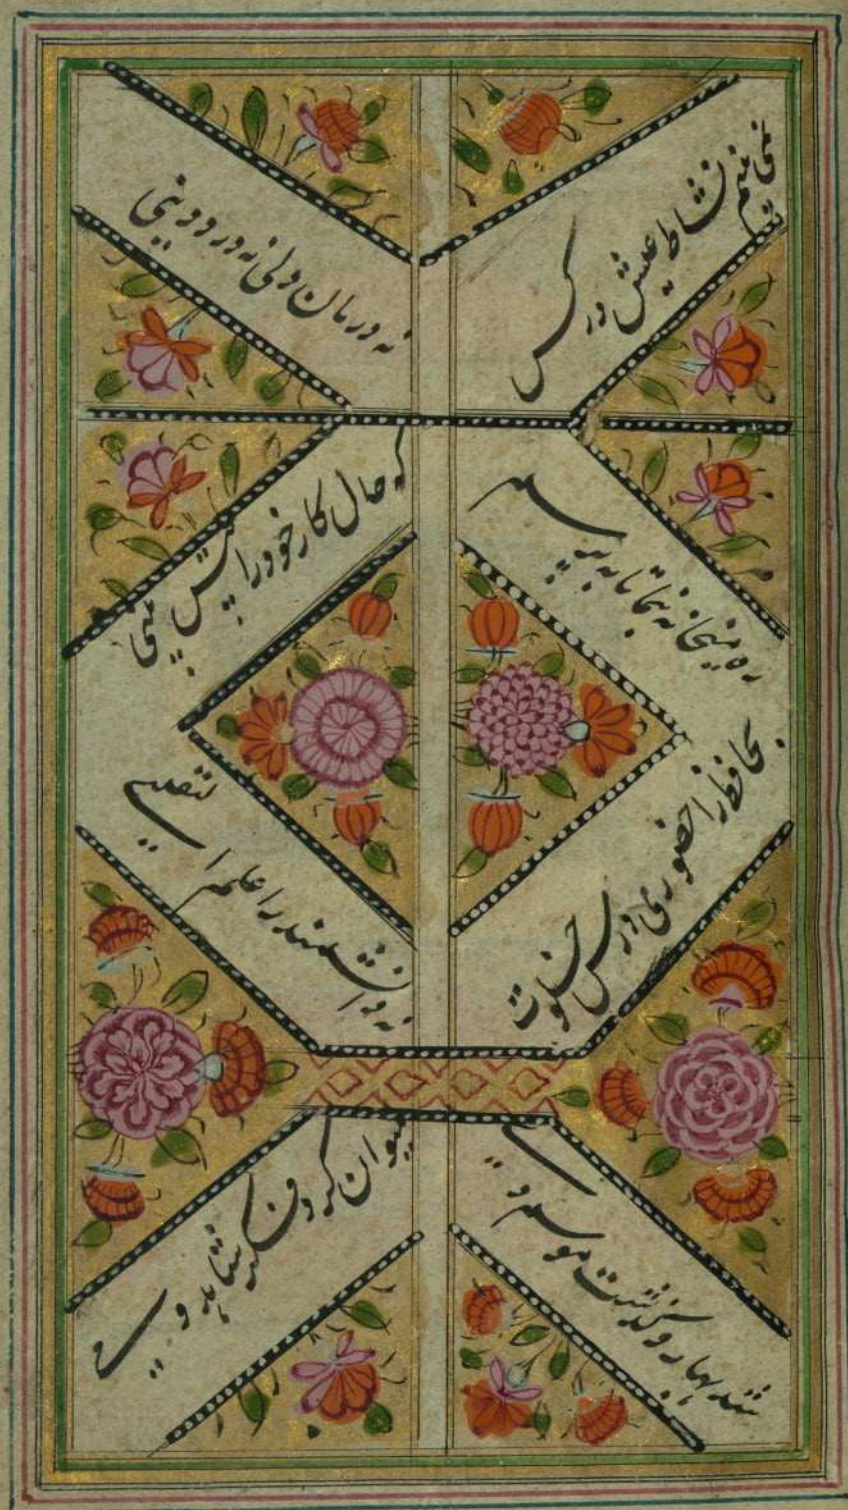 نمی بینم نشاط عیش در کس
نه درمان دلی نه درد دینی
ره میخانه بنما تا بپرسیم
که حال کار خود را پیش بینی
نه حافظ را حضوری درس خلوت
نه دانشمند را علم الیقینی
شد بهار و گذشت موسم دی
میتوان کرد فکر شاهد و می